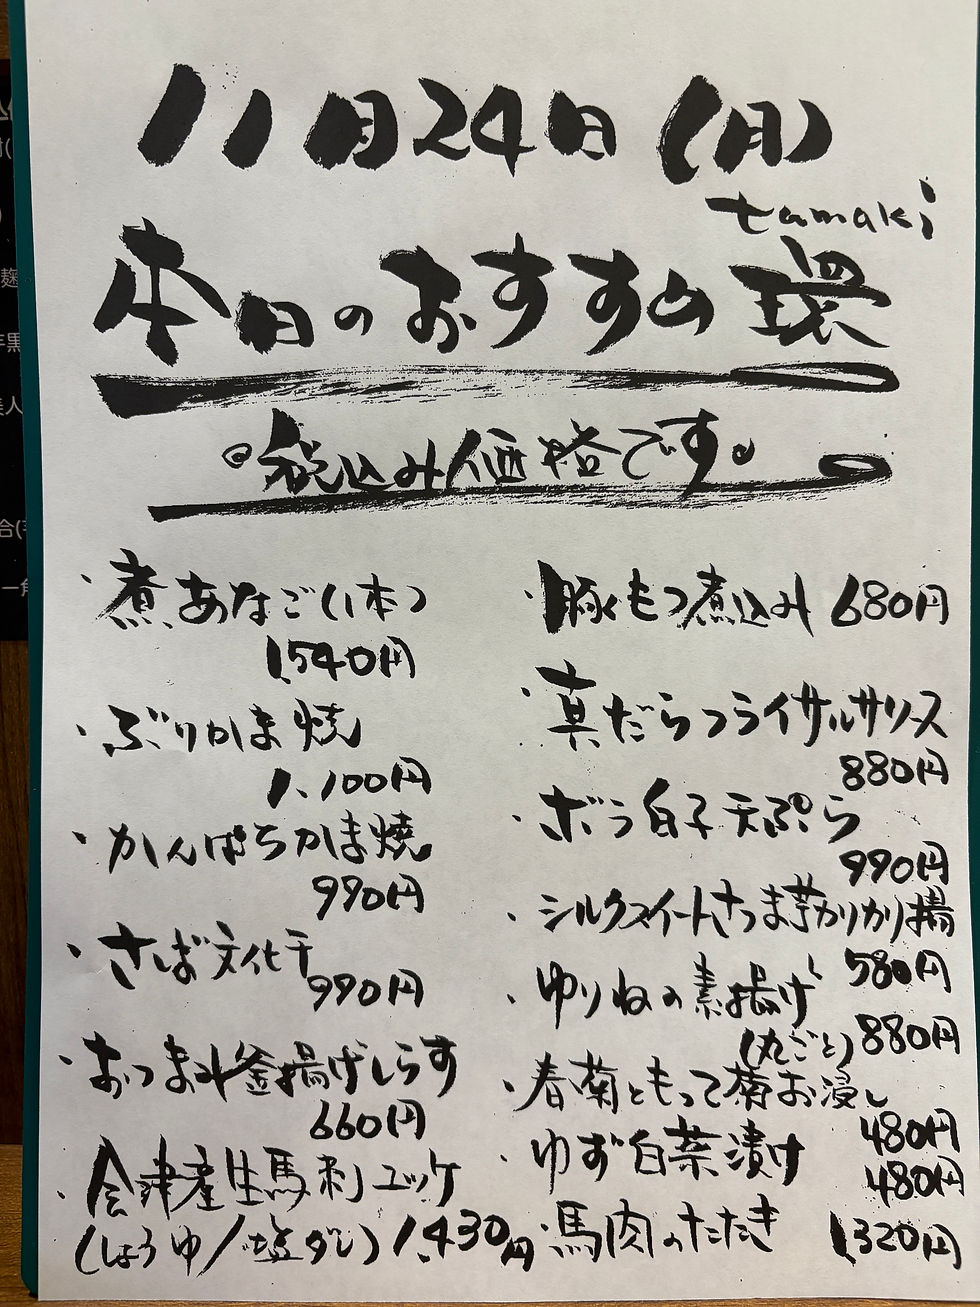 11月24日(月)
tamaki
本日のおすすめ 環
税込み価格です。
・煮あなご(1本)
1,540円
・ぶりかま焼
1,100円
・かんぱちかま焼
990円
・さば文化干
990円
・おつまみ釜揚げしらす
660円
・会津産生馬刺ユッケ
(しょうゆ/塩ダレ) 1,430円
・豚もつ煮込み 680円
・真だらフライサルサソース
880円
・ボラ白子天ぷら
990円
・シルクスイートさつま芋かりかり揚
580円
・ゆりねの素揚げ
(丸ごと) 880円
・春菊ともって菊お浸し
480円
・ゆず白菜漬け
480円
・馬肉のたたき 1,320円